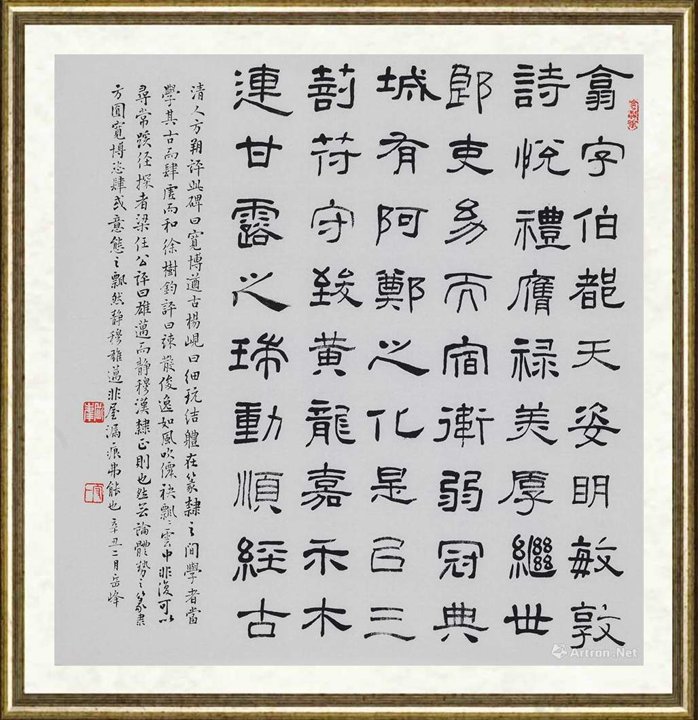 翕字伯都天姿明敏敦
詩悅禮膺祿美厚繼世
郎吏幼而宿衛弱冠典
城有阿鄭之化是㠯三
剖符守致黃龍嘉禾木
連甘露之瑞動順經古
清人方朔評此碑曰寬博遒古楊峴曰細玩結體在篆隸之間學者當
學其古而肆虛而和徐樹鈞評曰疎散俊逸如風吹僊袂飄飄雲中非復可以
尋常蹊徑探者梁任公評曰雄邁而靜穆漢隸正則也然無論體勢之篆隶
方圓寬博恣肆或意態之飄然靜穆雄邁非屋漏痕弗能也辛丑二月岳峰
Artron.Net